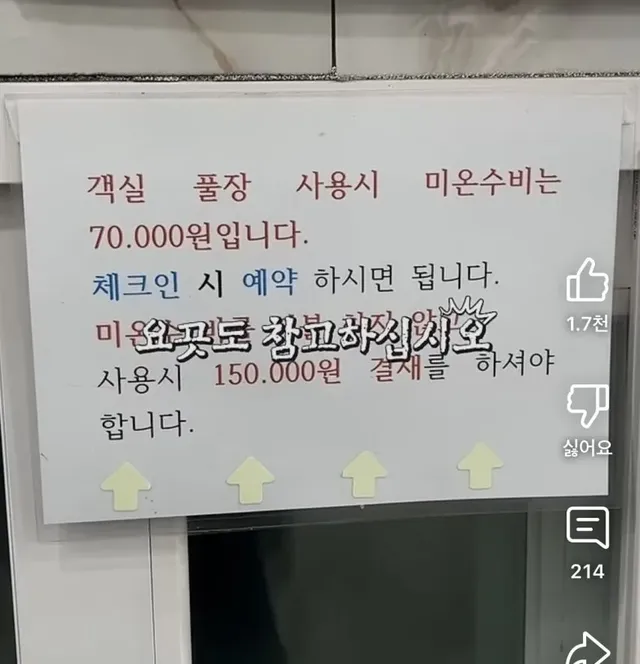 객실 풀장 사용시 미온수비는
70.000원입니다.
체크인 시 예약 하시면 됩니다.
요곳도 참고하십시오
사용시 150.000원 결재를 하셔야
합니다.
1.7천
싫어요
214